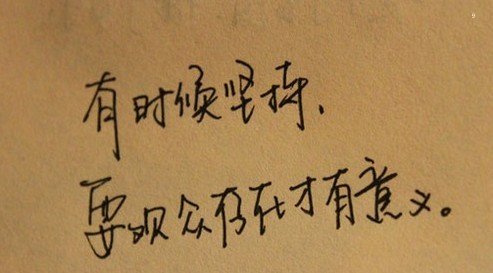 9
有时候坚持、
要观众存在才有意义。